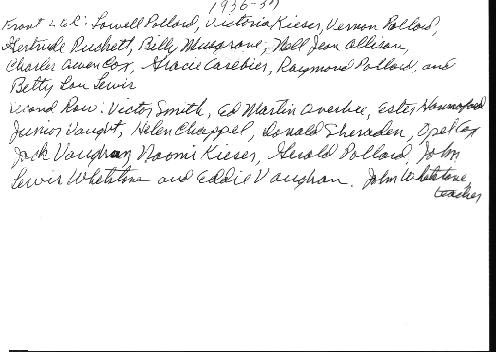 1936-37
Front L to R: Lowell Pollard, Victoria Kieser, Vernon Pollard,
Gertrude Puckett, Billy Musgrove, Nell Jean Allison,
Charles Owen Cox, Gracie Casebier, Raymond Pollard, and
Betty Lou Lewis
Second Row: Victor Smith, Ed Martin Overbee, Ester Hannaford
Junior Vaught, Helen Chappel, Donald Sheraden, Opel Cox
Jack Vaughan, Naomi Kieser, Gerald Pollard, John
Lewis Whetstone and Eddie Vaughan. John Whetstone,
teacher